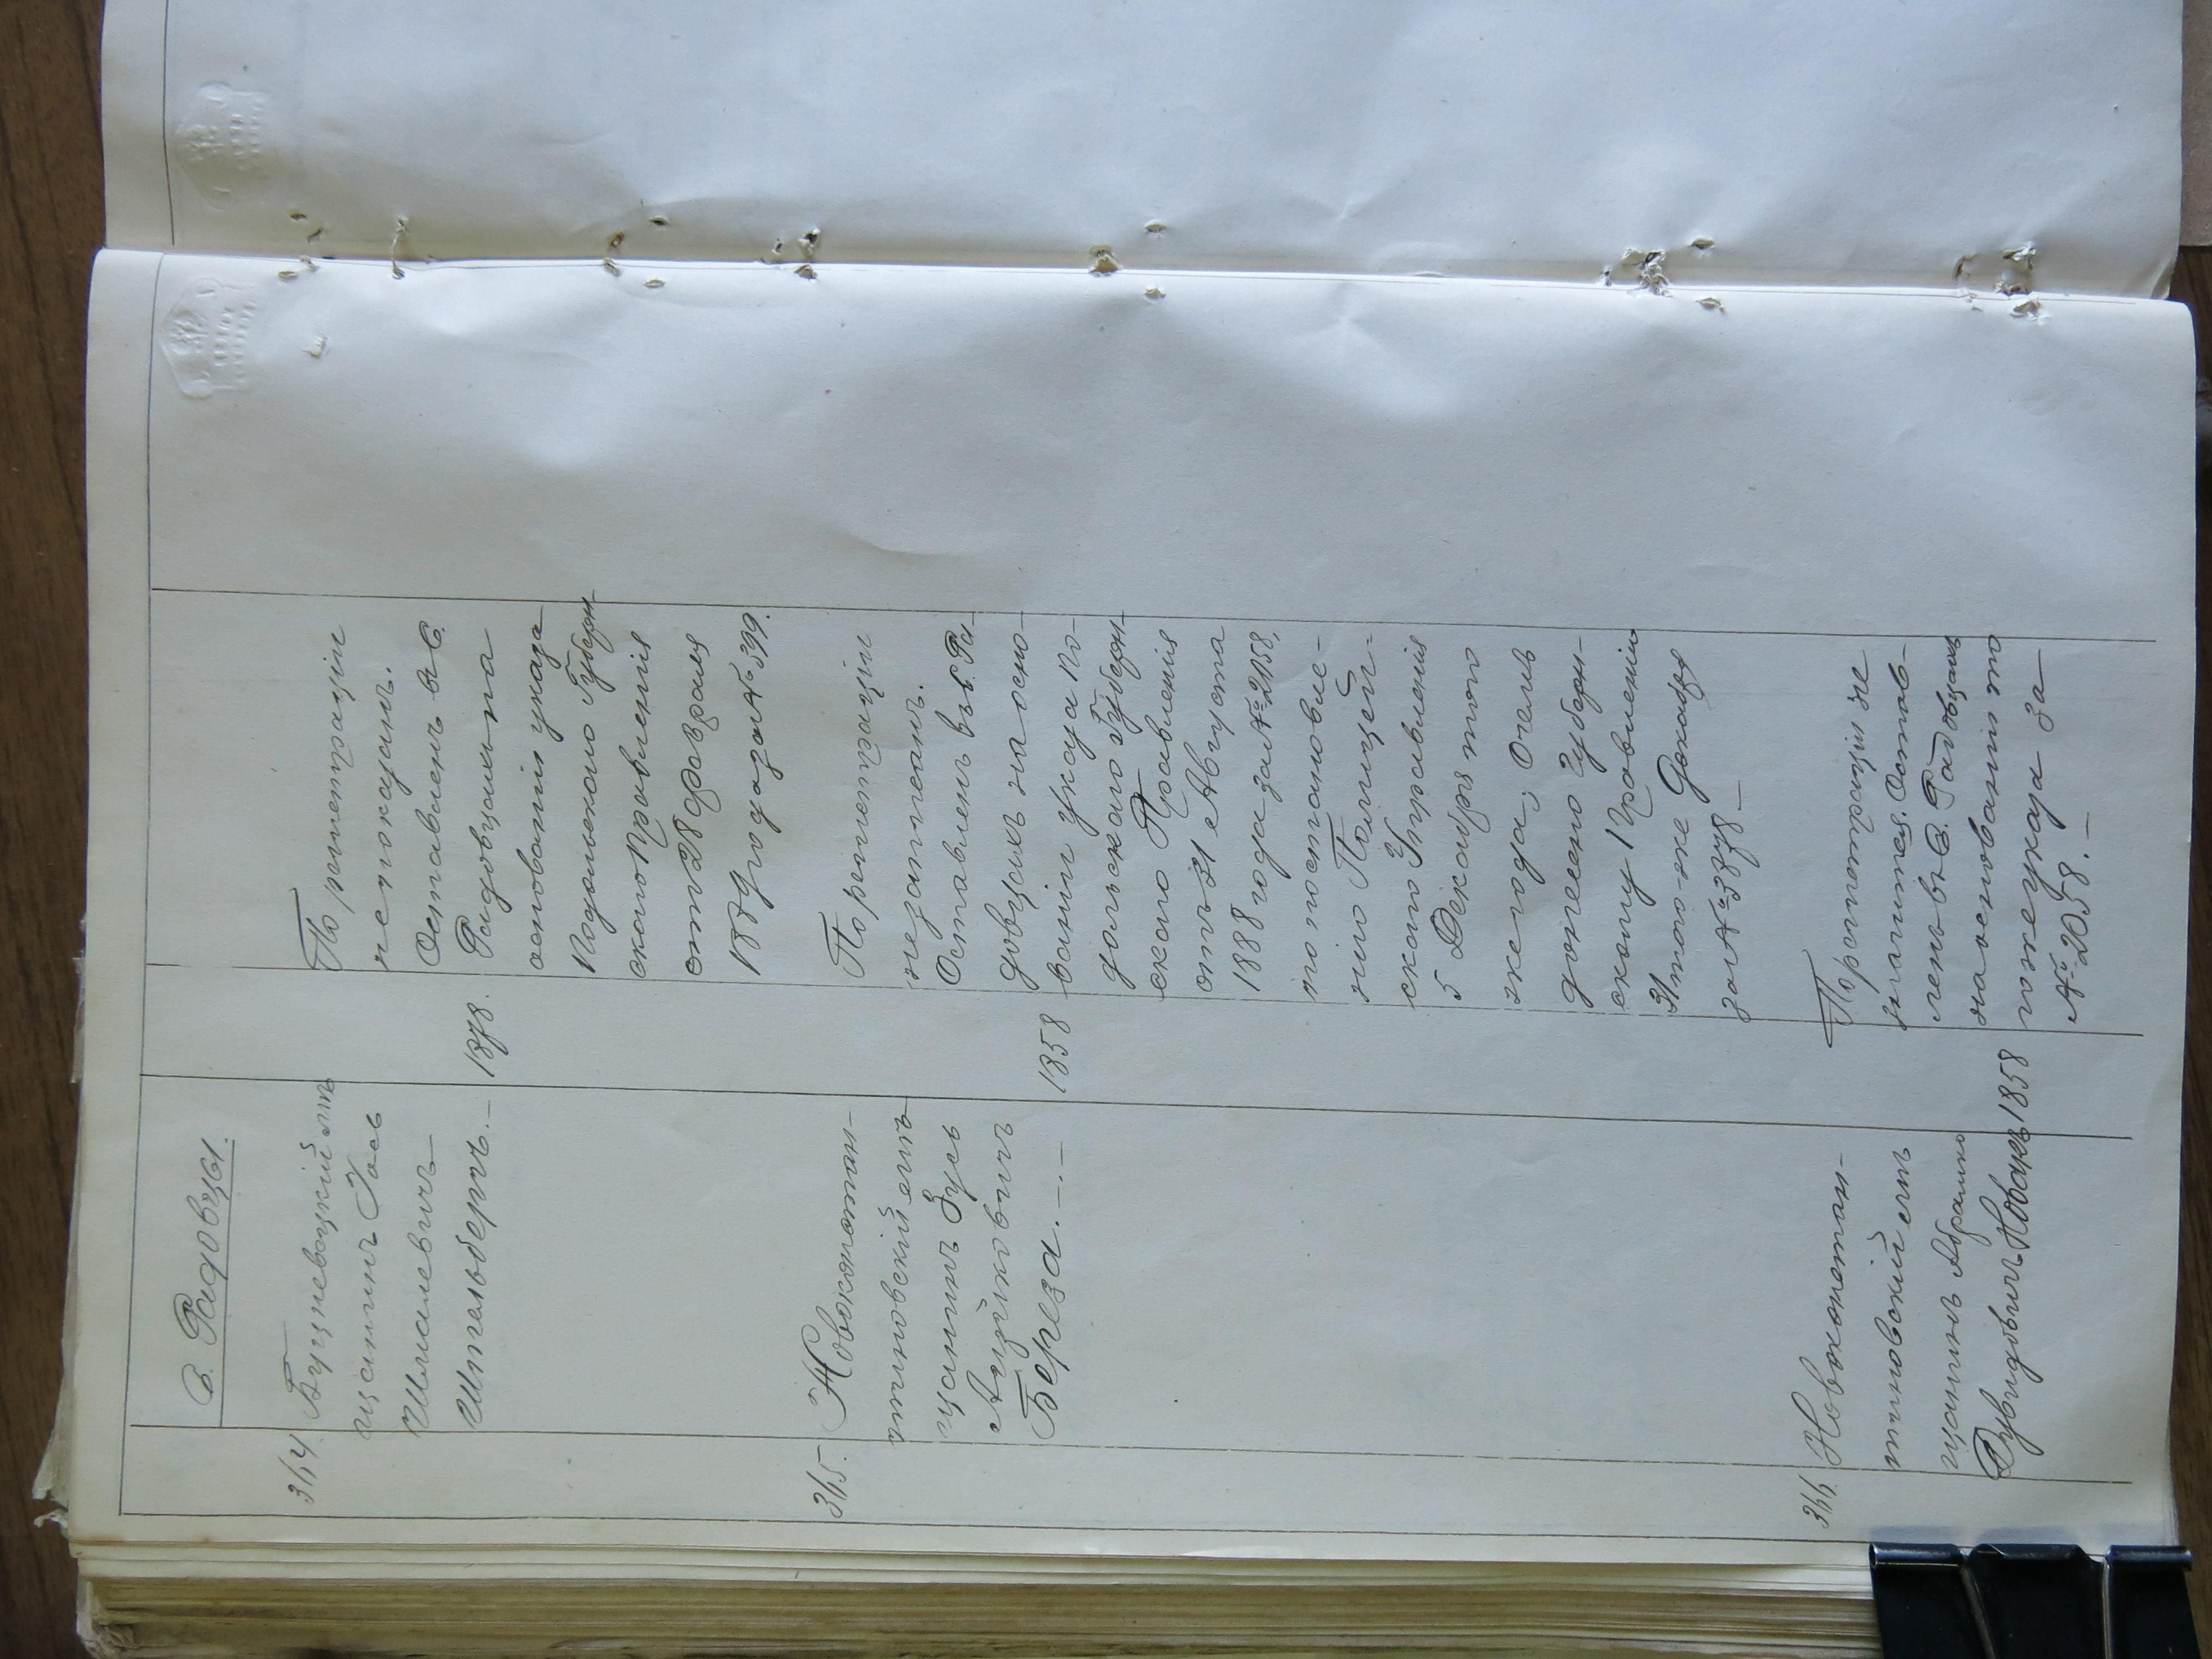 С. Радовцы.
344. Бугневацкій мѣ-
щанинъ Іось
Шмулевичъ
Штельбергъ. –
1878.
По регистраціи
не показанъ.
Оставленъ въ С.
Радовцахъ на
основаніи указа
Подольскаго Губерн-
скаго Правленія
отъ 28 Февраля
1889 года за № 399.
345. Новоконстан-
тиновскій мѣ-
щанинъ Зусь
Ицковичъ
Береза. –.–
1858
По регистраціи
не записанъ.
Оставленъ въ с. Ра-
довцахъ на осно-
ваніи указа По-
дольскаго Губерн-
скаго Правленія
отъ 31 Августа
1888 года за № 2158,
по постановле-
нію Полицей-
скаго Управленія
5 Декабря того
же года; о чемъ
донесено Губерн-
скому Правленію
того-же Декабря
за № 3378 –
Новоконстан-
тиновскій мѣ-
щанинъ Абрамко
Дувидовичъ Новакъ
1858
По регистраціи не
значится. Остав-
ленъ въ С. Радовцахъ
на основаніи то
гоже указа за
№ 2058. –